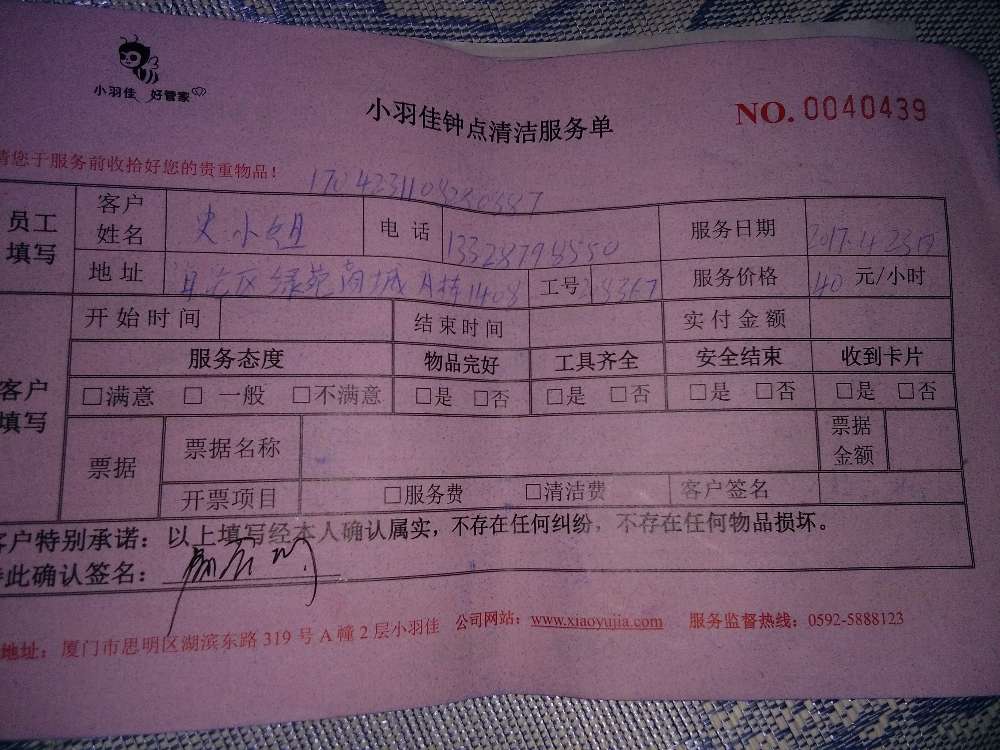 小羽佳 好管家
小羽佳钟点清洁服务单
NO. 0040439
请您于服务前收拾好您的贵重物品！
员工填写 客户姓名 史小姐 电话 服务日期 2017.4.23日
地址 绿苑商城 1408 工号 服务价格 40 元/小时
开始时间 结束时间 实付金额
客户填写 服务态度 物品完好 工具齐全 安全结束 收到卡片
□满意 □一般 □不满意 □是 □否 □是 □否 □是 □否 □是 □否
票据 票据名称 票据金额
开票项目 □服务费 □清洁费 客户签名
客户特别承诺：以上填写经本人确认属实，不存在任何纠纷，不存在任何物品损坏。
特此确认签名：
地址：厦门市思明区湖滨东路 319 号 A 幢 2 层小羽佳 公司网站：www.xiaoyujia.com 服务监督热线：0592-5888123